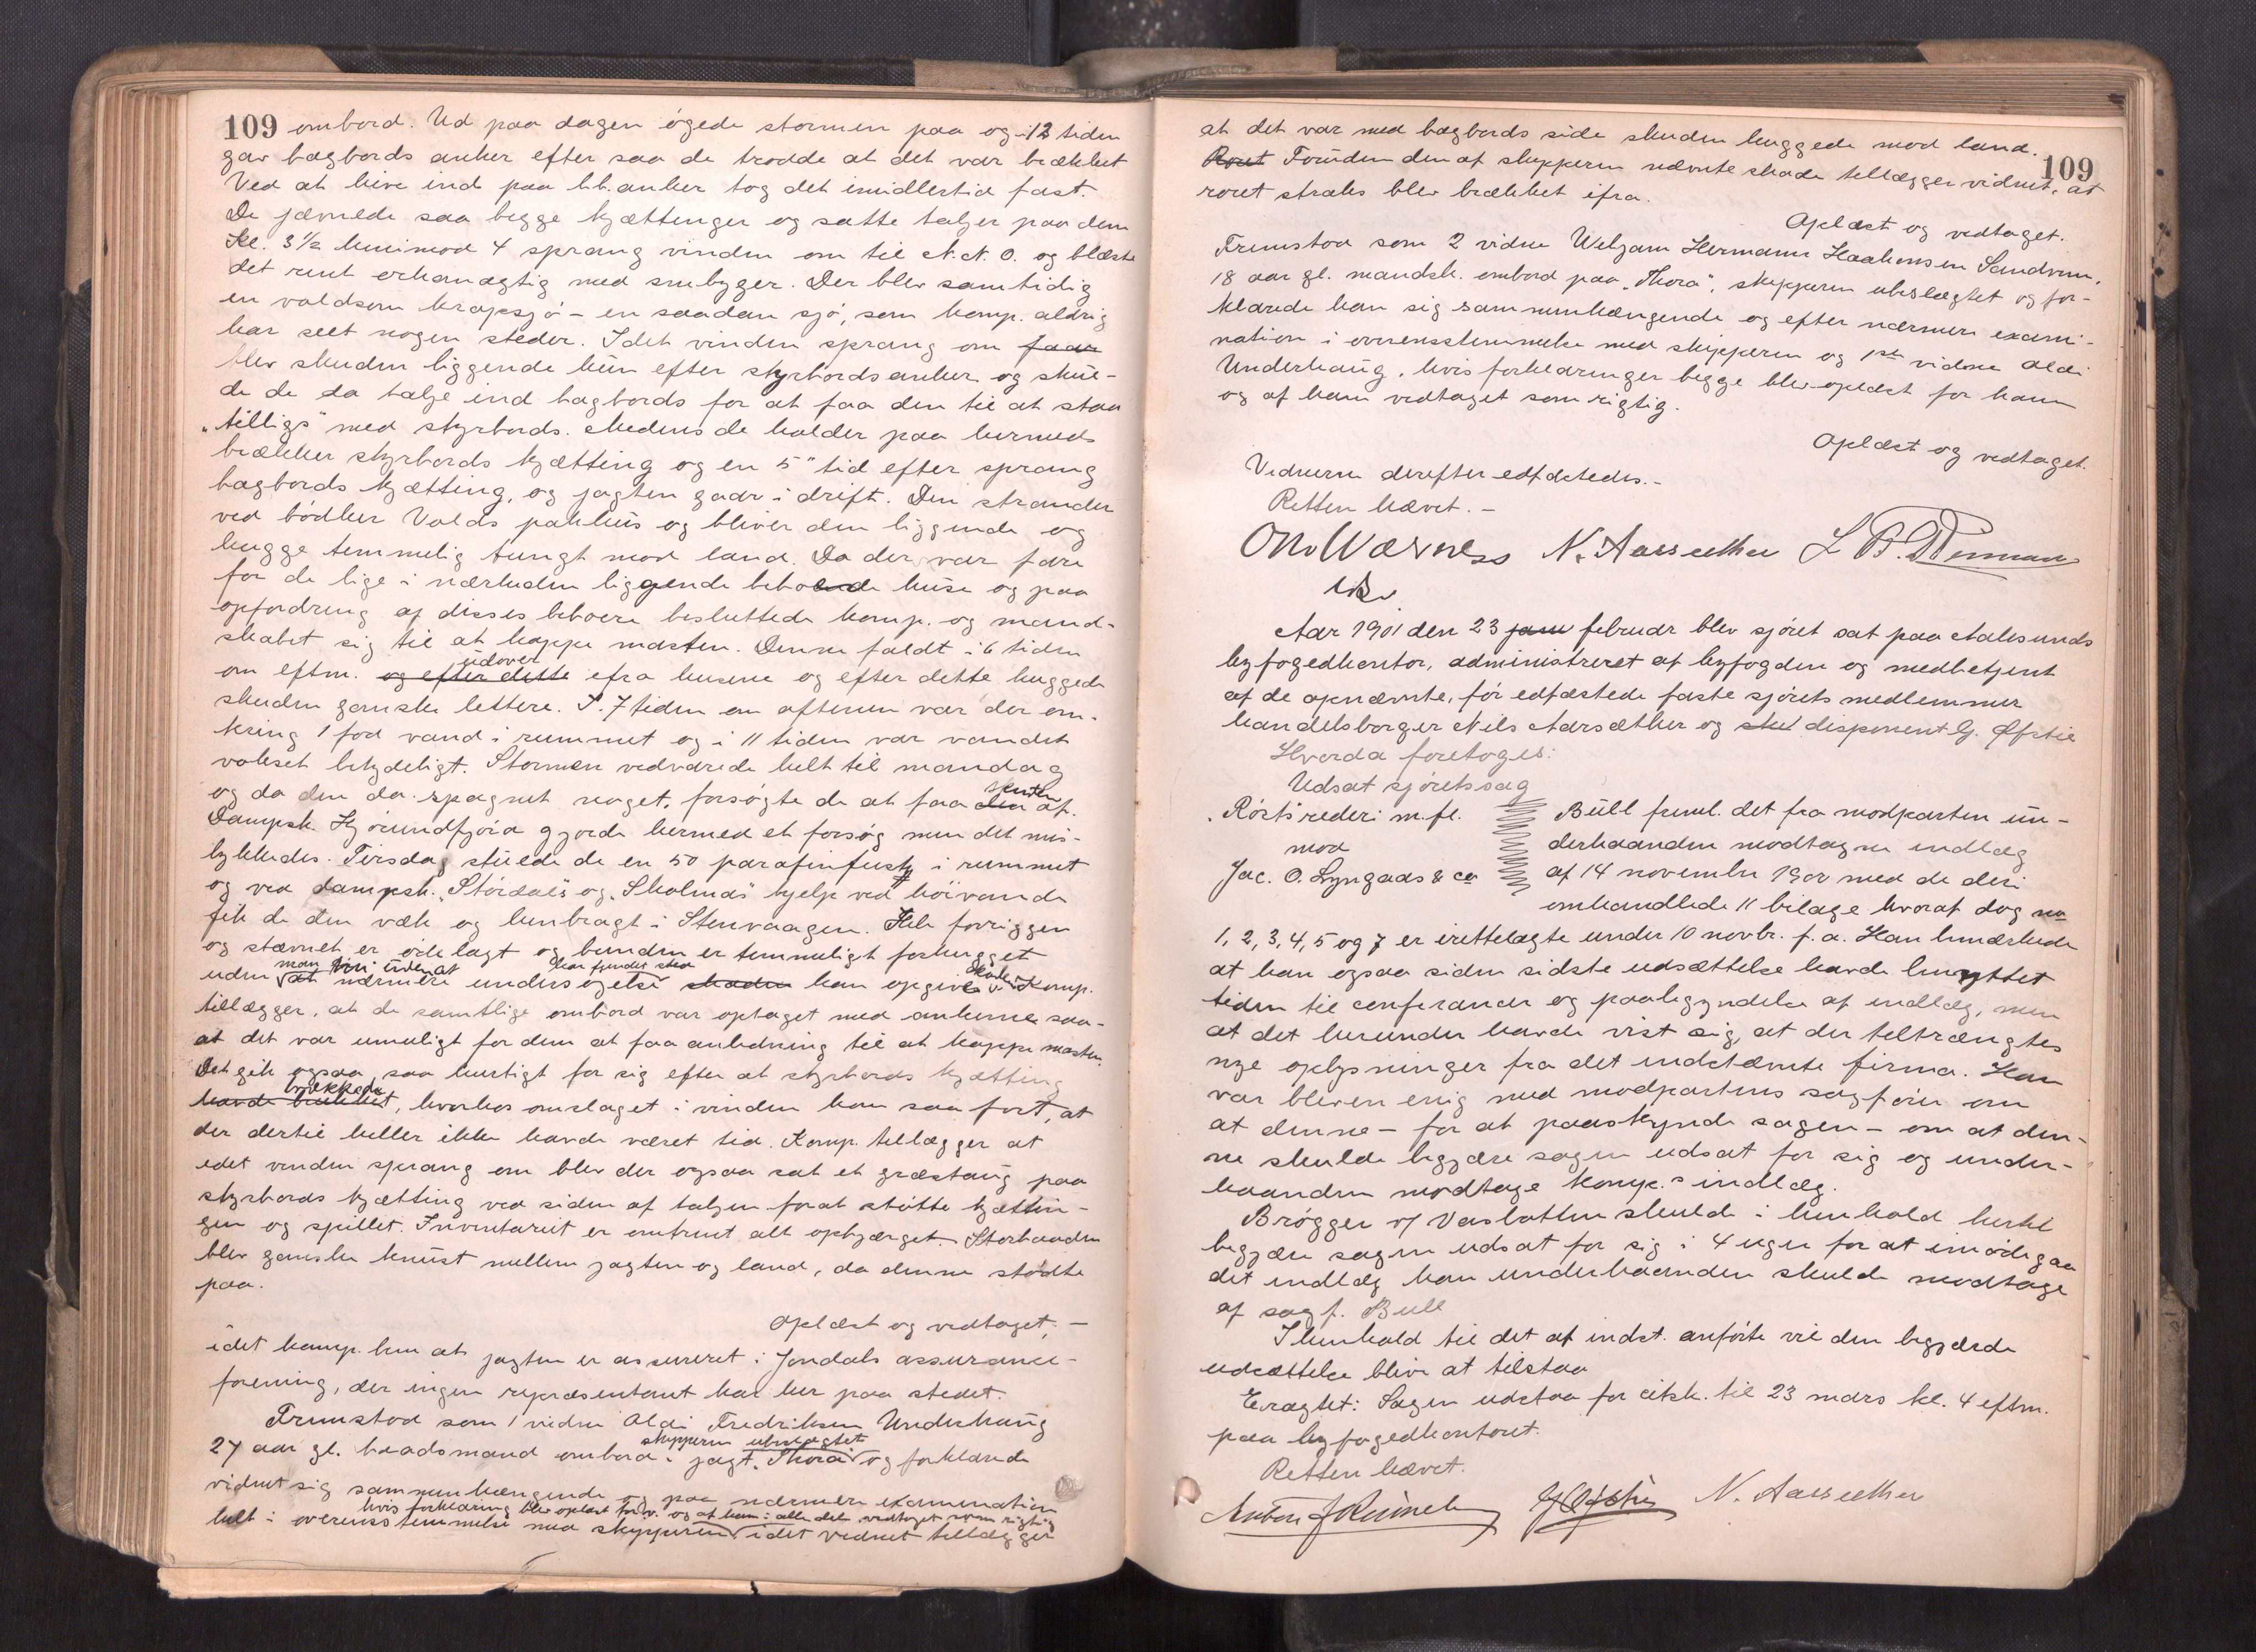 109 ombord. Ud paa dagen øgede stormen paa og i 12 tiden
gav bagbords anker efter saa de trodde at det var brækket
Ved at hive ind paa b.b. anker tog det imidlertid fast.
De jævnede saa begge kjættinger og satte taljer paa dem
Kl. 3 1/2 henimod 4 sprang vinden om til N.N.O. og blæste
det rent orkanagtig med snebyger. Der blev samtidig
en voldsom krapsjø - en saadan sjø, som komp. aldrig
har seet nogen steder. Idet vinden sprang om faar
blev skuden liggende kun efter styrbords anker og skul-
de de da talje ind bagbords for at faa den til at staa
"tilligs" med styrbords. Medens de holder paa hermed
brækker styrbords kjætting og en 5" tid efter sprang
bagbords kjætting, og jagten gaar i drift. Den strander
ved bødker Volds pakhus og bliver den liggende og
hugge temmelig tungt mod land. Da der var fare
for de lige i nærheden liggende beboede huse og paa
opfordring af disses beboere besluttede komp. og mand-
skabet sig til at kappe masten. Denne faldt i 6 tiden
udover
om eftm. og efter dette ifra husene og efter dette huggede
skuden ganske lettere. I 7 tiden om aftenen var der om-
kring 1 fod vand i rummet og i 11 tiden var vandet
vokset betydeligt. Stormen vedvarede helt til mandag
skuden
og da den da spagnet noget, forsøgte de at faa den af.
Dampsk. Hjørundfjord gjorde hermed et forsøg men det mis-
lykkedes. Tirsdag stuede de en 50 parafinfustg i rummet
og ved dampsk. "Stördals" og "Skolmas" hjelp ved høivande
fik de den væk og henbragt i Stenvaagen. Hele forriggen
og stævnet er ødelagt og bunden er temmeligt forhugget
man uden at har fundet sted skaden
uden at nærmere undersøgelse skaden kan opgives. Komp.
tillægger, at de samtlige ombord var optaget med ankerne saa-
at det var umuligt for dem at faa anledning til at kappe masten.
Det gik ogsaa saa hurtigt for sig efter at styrbords kjætting
brækkede
havde brækket, hvorhos omslaget i vinden kom saa fort, at
der dertil heller ikke havde været tid. Komp. tillægger at
idet vinden sprang om blev der ogsaa sat et græstaug paa
styrbords kjætting ved siden af taljen forat støtte kjættin-
gen og spillet. Inventariet er omtrent alt opbjærget. Storbaaden
blev ganske knust mellem jagten og land, da denne stødte
paa.
Oplæst og vedtaget, -
idet komp. bem. at jagten er assureret i Jondals assurance-
forening, der ingen repræsentant har her paa stedet.
Fremstod som 1 vidne Aldi Fredriksen Underhaug
skipperen ubeslægtet
27 aar gl. baadsmand ombord i jagt. "Thora" og forklarede
vidnet sig sammenhængende og paa nærmere examination
hvis forklaring blev oplæst for v. og af ham i alle dele vedtaget som rigtig
helt i overensstemmelse med skipperen idet vidnet tillægger
at det var med bagbords side skuden huggede mod land.
109
Roret Foruden den af skipperen nævnte skade tillægger vidnet, at
roret straks blev brækket ifra.
Oplæst og vedtaget.
Fremstod som 2 vidne Hermann Haakonsen Sandven,
18 aar gl. mandsk. ombord paa "Thora", skipperen ubeslægtet og for-
klarede han sig sammenhængende og efter nærmere exami-
nation i overensstemmelse med skipperen og 1ste vidne Aldi
Underhaug, hvis forklaringer begge blev oplæst for ham
og af ham vedtaget som rigtig.
Oplæst og vedtaget.
Vidnerne derefter edfæstedes. -
Retten hævet. -
Otto Wærness N. Aarsæther
Aar 1901 den 23 janu februar blev sjøret sat paa Aalesunds
byfogedkontor, administreret af byfogden og medbetjent
af de opnævnte, før edfæstede faste sjørets medlemmer
handelsborger Nils Aarsæther og disponent G. Øfstie
Hvorda foretoges:
Udsat sjøretssag
"Røsts" rederi m.fl. Bull freml. det fra modparten un-
mod derhaanden modtagne indlæg
Jac. O. Lyngaas & co af 14 november 1900 med de deri
omhandlede 11 bilage hvoraf dog no
1, 2, 3, 4, 5 og 7 er irettelagte under 10 novbr. f. a. Han bemærkede
at han ogsaa siden sidste udsættelse havde benyttet
tiden til conferancer og paabegyndelse af indlæg, men
at det herunder havde vist sig, at der tiltrængtes
nye oplysninger fra det indstævnte firma. Han
var bleven enig med modpartens sagfører om
at denne - for at paaskynde sagen - om at den-
ne skulde begjære sagen udsat for sig og under-
haanden modtage komp.s indlæg.
Brøgger v/ Vasbotten skulde i henhold hertil
begjære sagen udsat for sig i 4 uger for at imødegaa
det indlæg han underhaanden skulde modtage
af sagf. Bull
I henhold til det af indst. anførte vil den begjærede
udsættelse blive at tilstaa
Eragtet: Sagen udstaar for citsk. til 23 mars kl. 4 eftm.
paa byfogedkontoret.
Retten hævet.
G Øfstie N. Aarsæther